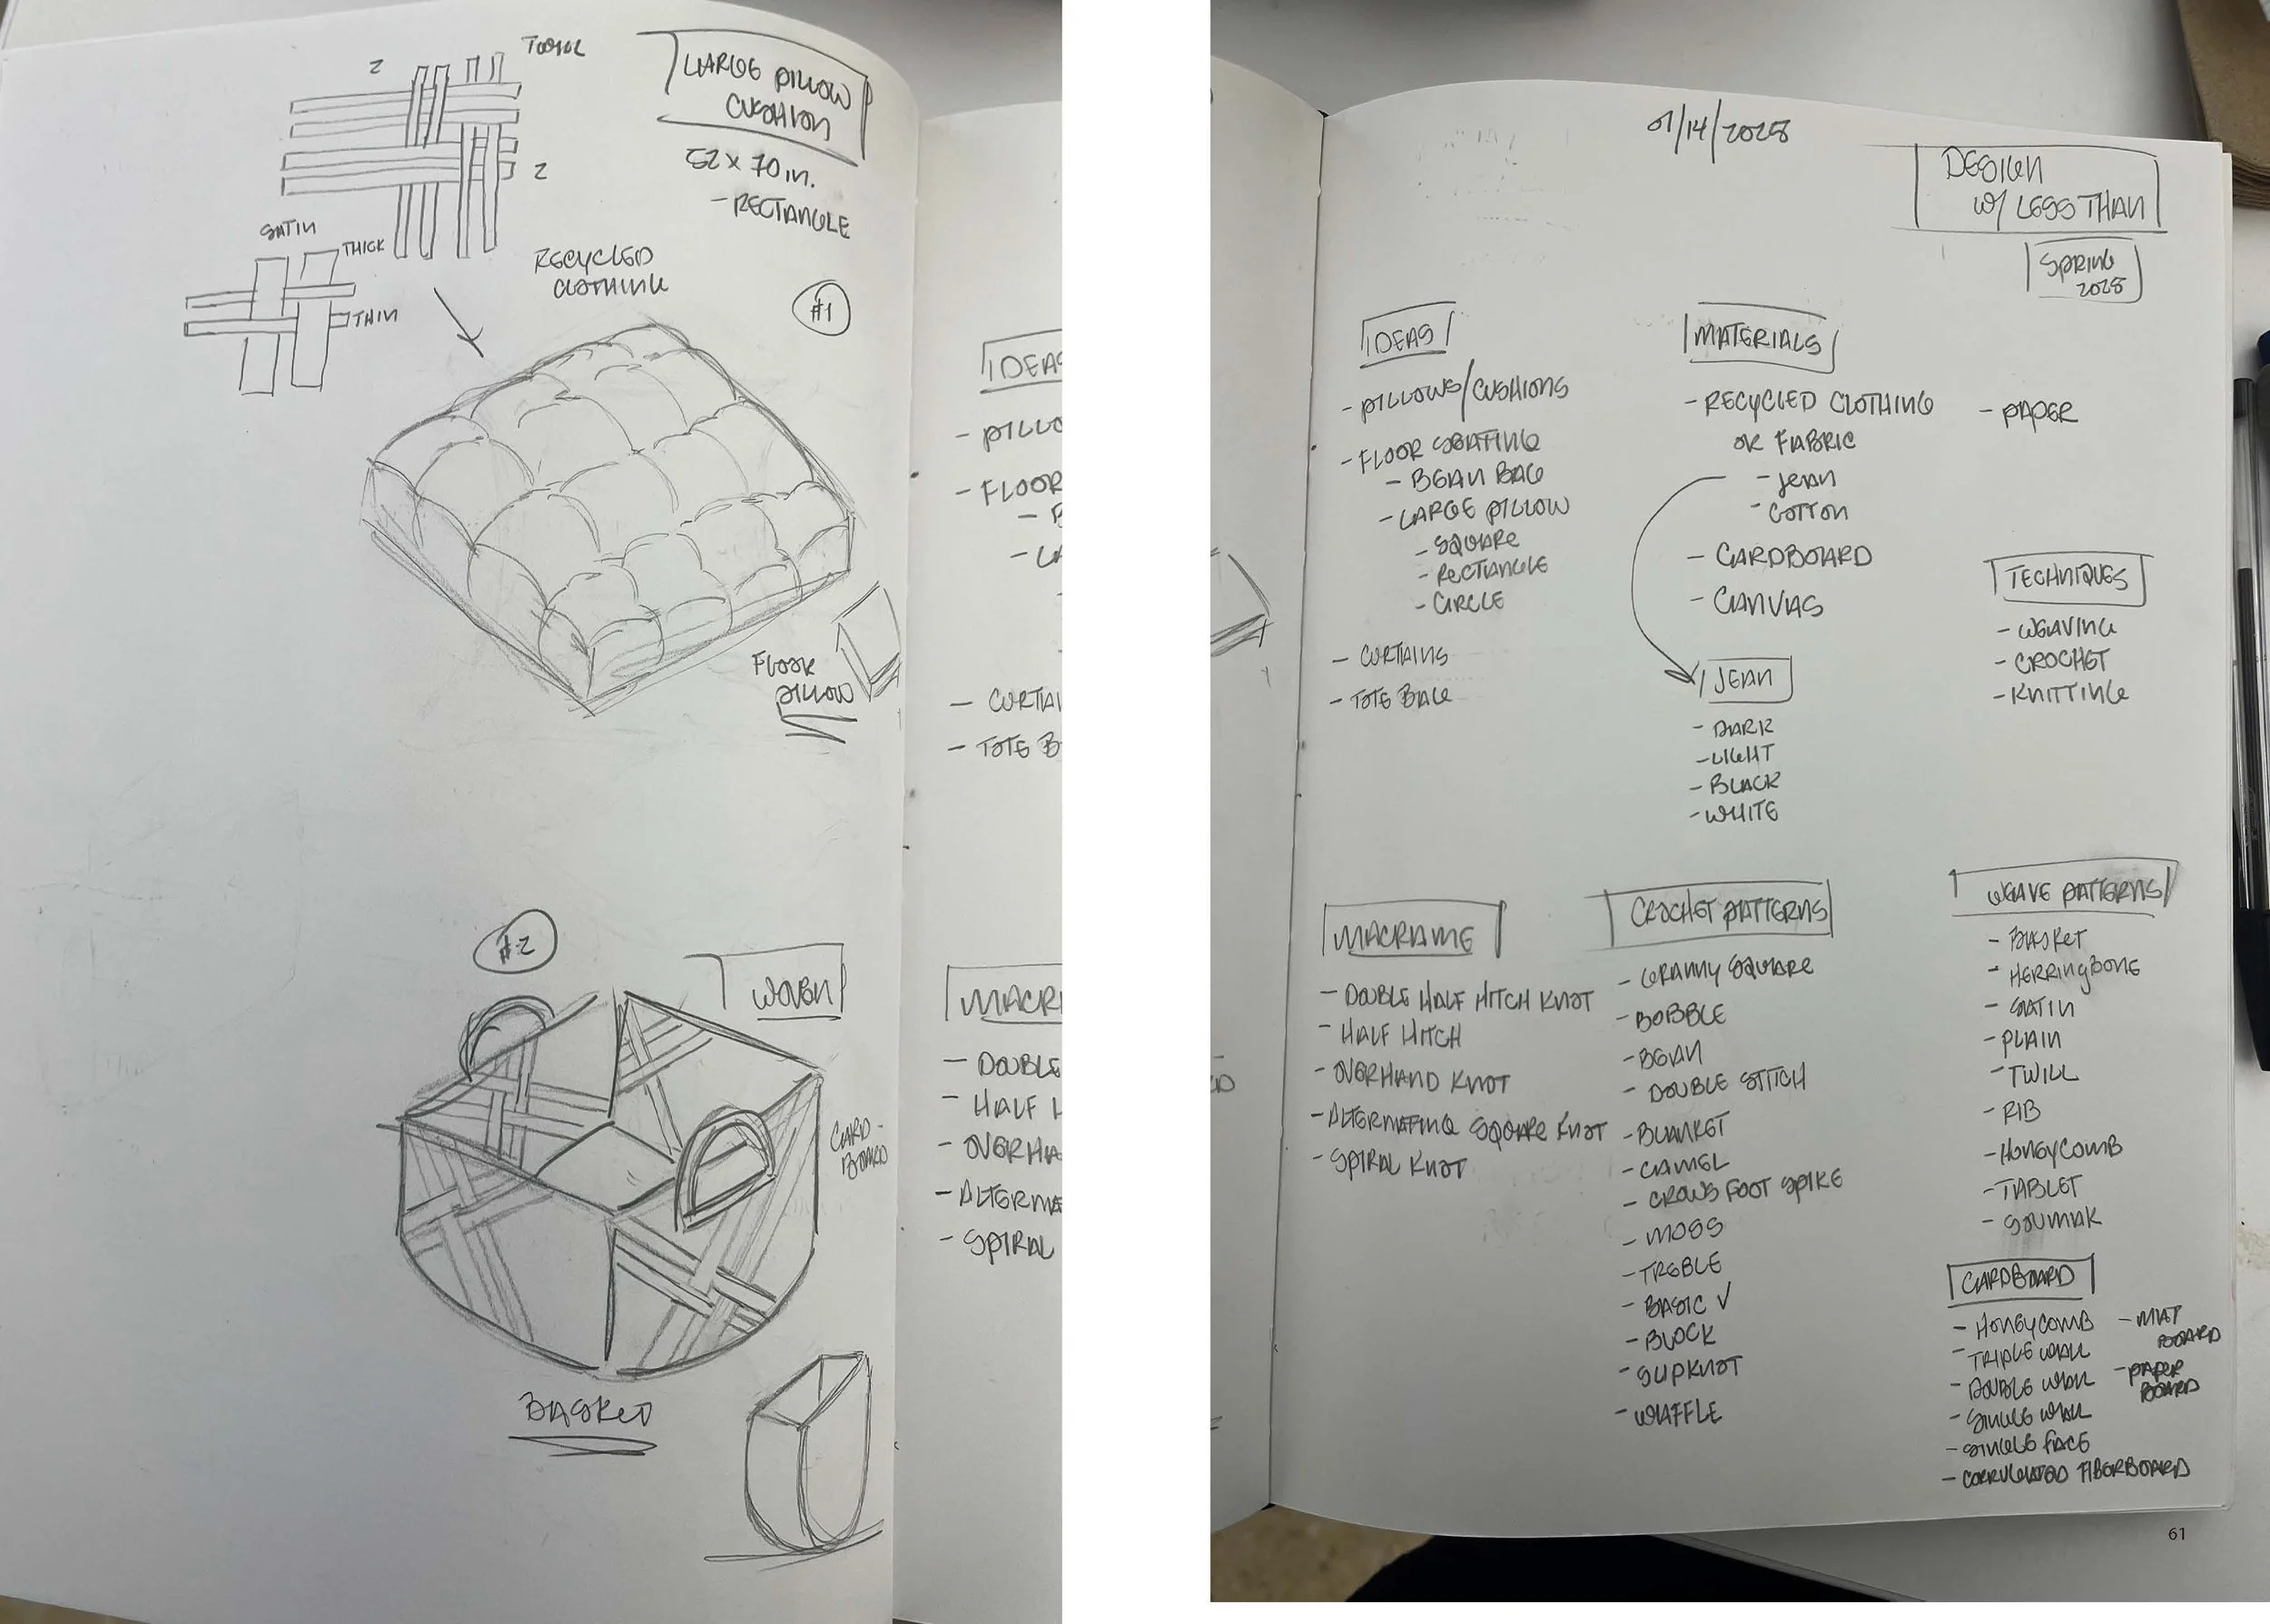 2
TWILL
LARGE PILLOW
CUSHION
52 x 70 in.
- RECTANGLE
2
SATIN
THICK
THIN
RECYCLED
CLOTHING
#1
FLOOR
PILLOW
#2
WOVEN
CARD-
BOARD
BASKET
IDEAS
- PILLO
- FLOOR
- CURTAI
- TOTE B
MACR
- DOUBLE
- HALF H
- OVERHA
- ALTERNA
- SPIRAL
01/14/2025
DESIGN
W/ LESS THAN
SPRING
2025
IDEAS
- PILLOWS/CUSHIONS
- FLOOR SEATING
- BEAN BAG
- LARGE PILLOW
- SQUARE
- RECTANGLE
- CIRCLE
- CURTAINS
- TOTE BAG
MATERIALS
- RECYCLED CLOTHING
OR FABRIC
- JEAN
- COTTON
- CARDBOARD
- CANVAS
- PAPER
JEAN
- DARK
- LIGHT
- BLACK
- WHITE
TECHNIQUES
- WEAVING
- CROCHET
- KNITTING
MACRAME
- DOUBLE HALF HITCH KNOT
- HALF HITCH
- OVERHAND KNOT
- ALTERNATING SQUARE KNOT
- SPIRAL KNOT
CROCHET PATTERNS
- GRANNY SQUARE
- BOBBLE
- BEAN
- DOUBLE STITCH
- BLANKET
- CAMEL
- CROWS FOOT SPIKE
- MOSS
- TREBLE
- BASIC V
- BLOCK
- SLIPKNOT
- WAFFLE
WEAVE PATTERNS
- BASKET
- HERRINGBONE
- SATIN
- PLAIN
- TWILL
- RIB
- HONEYCOMB
- TABLET
- SOUMAK
CARDBOARD
- HONEYCOMB
- TRIPLE WALL
- DOUBLE WALL
- SINGLE WALL
- SINGLE FACE
- CORRUGATED FIBERBOARD
- MAT
BOARD
- PAPER
BOARD
61